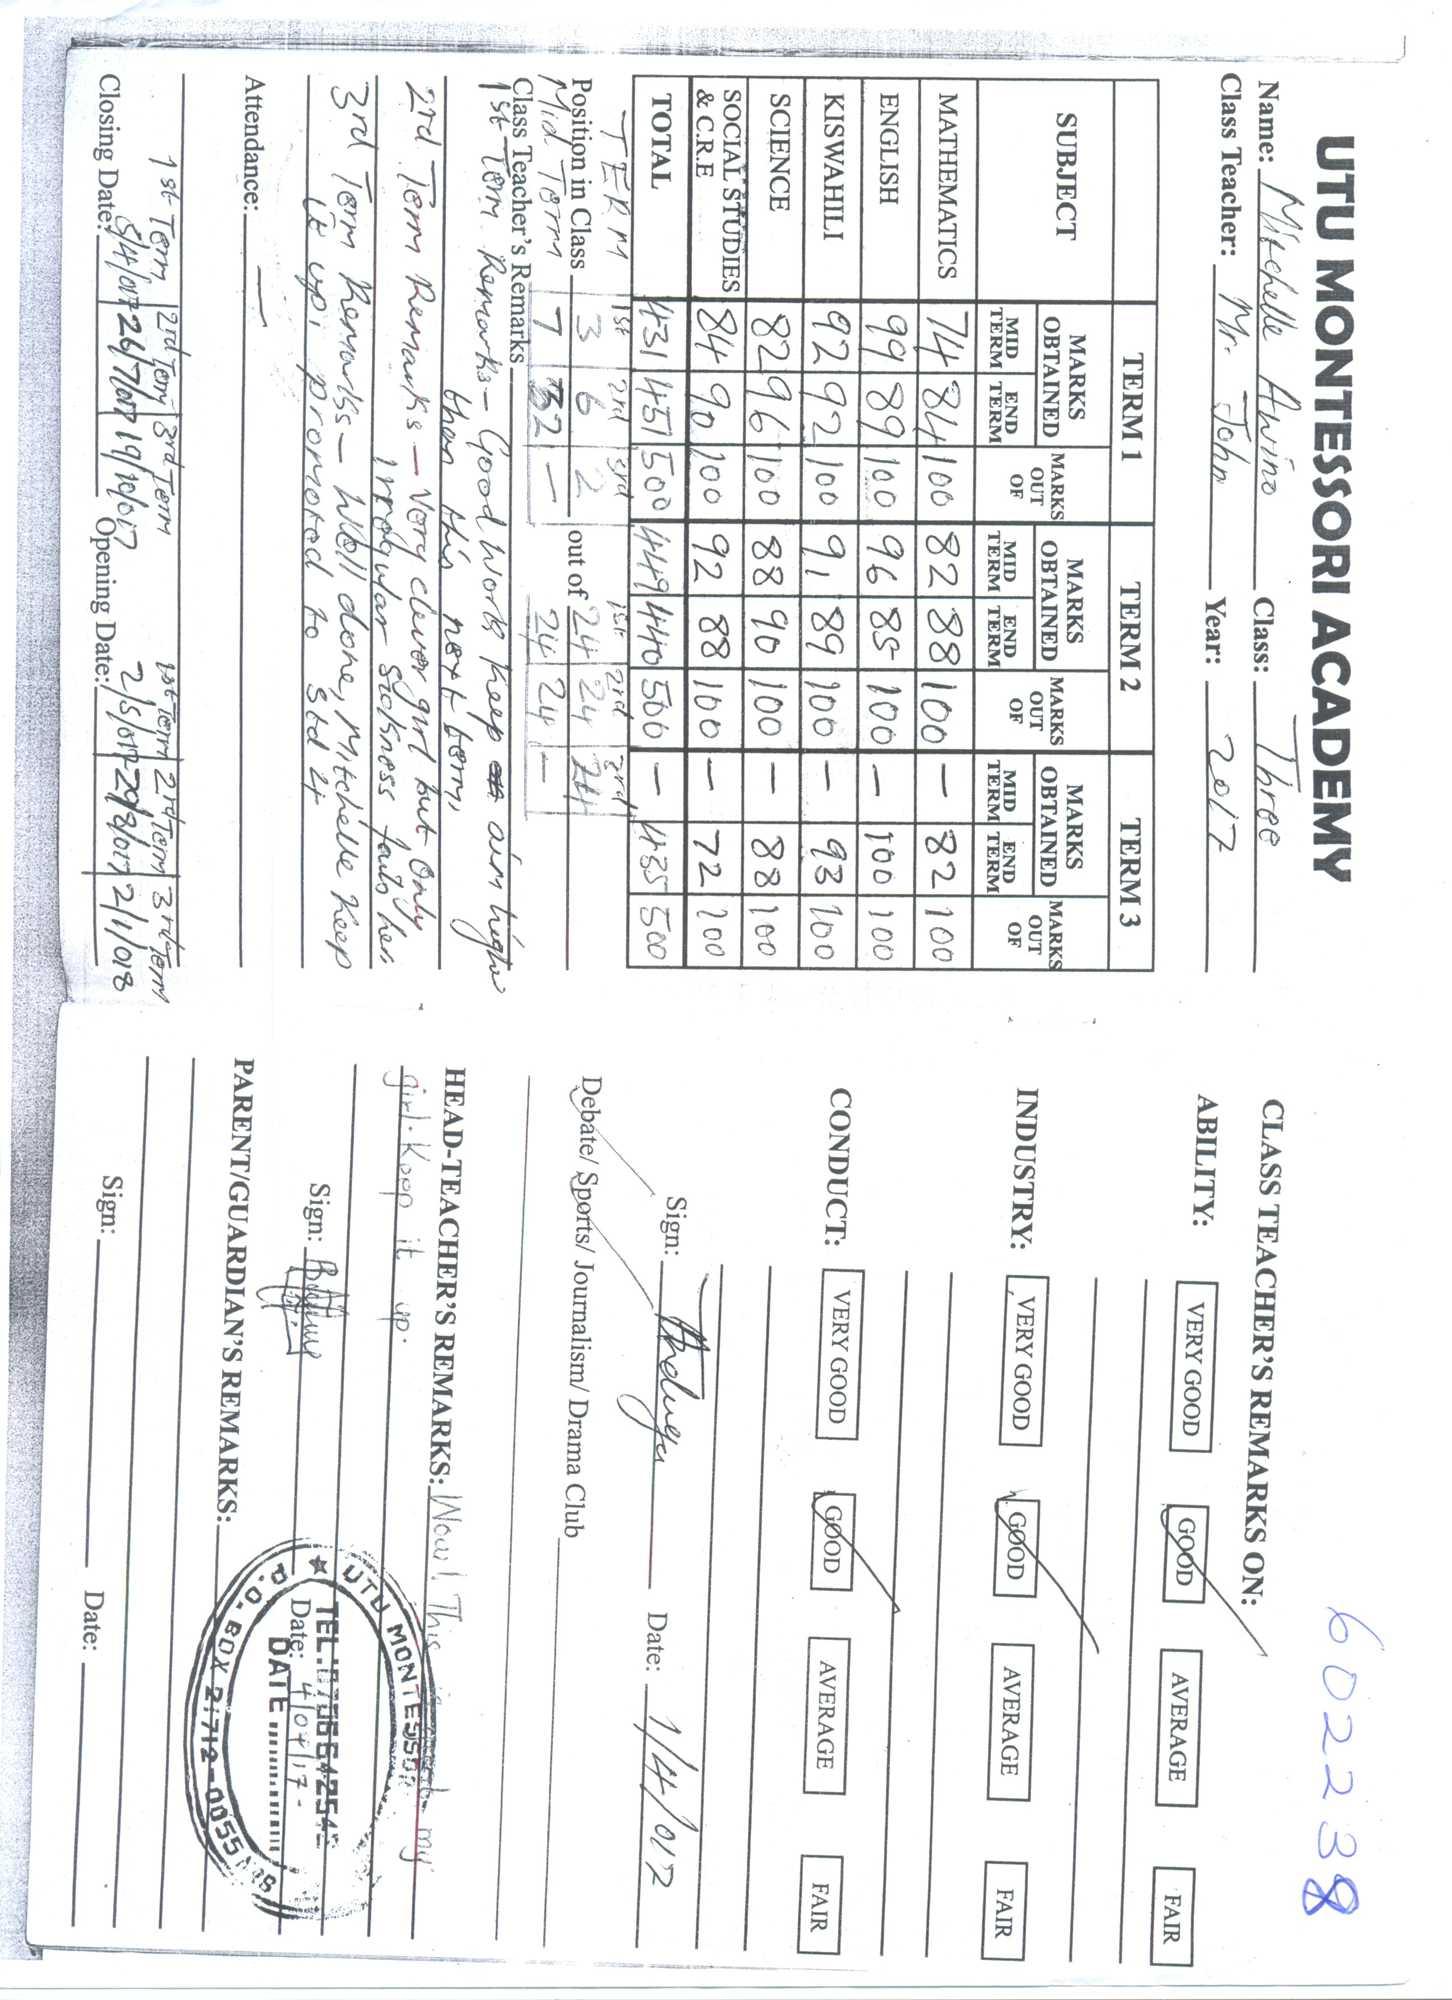 UTU MONTESSORI ACADEMY
Name: Mitchelle Awino Class: Three
Class Teacher: Mr. John Year: 2017
SUBJECT TERM 1 TERM 2 TERM 3
MARKS OBTAINED MARKS OUT OF MARKS OBTAINED MARKS OUT OF MARKS OBTAINED MARKS OUT OF
MID TERM END TERM MID TERM END TERM MID TERM END TERM
MATHEMATICS 74 84 100 82 88 100 — 82 100
ENGLISH 99 89 100 96 85 100 — 100 100
KISWAHILI 92 92 100 91 89 100 — 93 100
SCIENCE 82 96 100 88 90 100 — 88 100
SOCIAL STUDIES & C.R.E 84 90 100 92 88 100 — 72 100
TOTAL 431 451 500 449 440 500 — 435 500
TERM 1st 2nd 3rd 1st 2nd 3rd
Position in Class 3 6 2 out of 24 24 24
Mid Term 7 2 — 24 24 —
Class Teacher's Remarks
1st Term Remarks - Good work keep aim higher
then this next term.
2rd Term Remarks - Very clever girl but only
irregular sickness fails her.
3rd Term Remarks - Well done, Mitchelle keep
it up, promoted to std 4
Attendance: —
1st Term 2rd Term 3rd Term 1st Term 2rd Term 3rd Term
Closing Date: 5/4/017 26/7/017 19/10/017 Opening Date: 2/5/017 29/8/017 2/1/018
602238
CLASS TEACHER'S REMARKS ON:
ABILITY: VERY GOOD GOOD AVERAGE FAIR
INDUSTRY: VERY GOOD GOOD AVERAGE FAIR
CONDUCT: VERY GOOD GOOD AVERAGE FAIR
Sign: Date: 1/4/017
Debate/ Sports/ Journalism/ Drama Club
HEAD-TEACHER'S REMARKS: Wow! This is my
girl. Keep it up.
Sign: Date: 4/04/17
UTU MONTESSORI
TEL:
DATE
P.O. BOX 21712-00505
PARENT/GUARDIAN'S REMARKS:
Sign: Date: